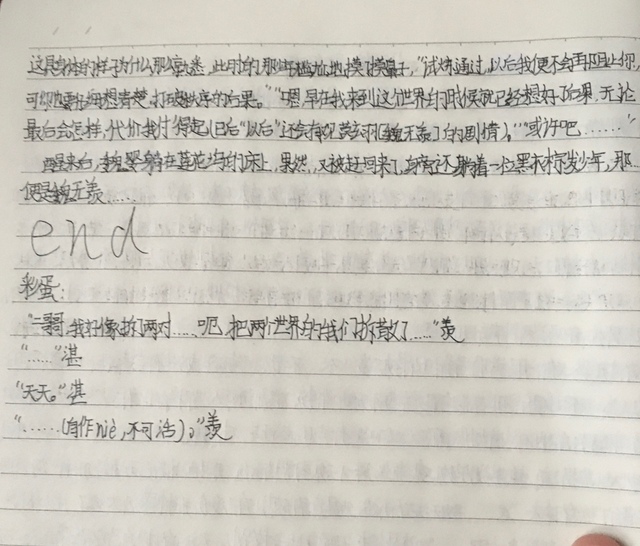 这具身体的样子为什么那么熟悉,此时的那些尴尬地摸了摸鼻子,“试炼通过,以后我便不会再阻止你,
可你也要仔细想清楚,打破秩序的后果。”“嗯,早在我来到这个世界的时候就已经想好了后果,无论
最后会怎样,代价我付得起(已后“以后”还会有现实羽[魏无羡]的剧情)。”“或许吧……”
再醒来后,魏婴躺在莲花坞的床上,果然,又被赶回来了,身旁还躺着一位黑衣束发少年,那
便是魏无羡……
end
彩蛋:
“二哥哥,我好像拆了两对……呃,把两个世界的我们拆散了……”羡
“……”湛
“天天。”湛
“……(自作niè,不可活)。”羡